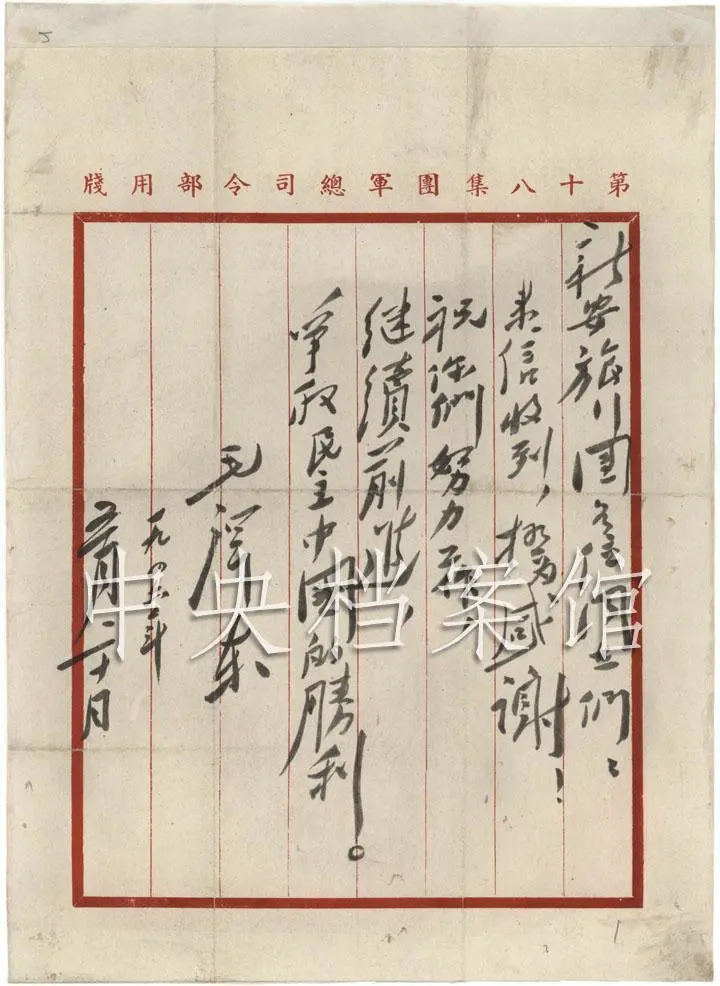 第十八集團軍總司令部用牋
新安旅行团各位同志们：
来信收到，極为感謝！
祝你们努力
继續前進，
爭取民主中國的勝利。
毛澤东
一九四六年
五月二十日
中央档案馆